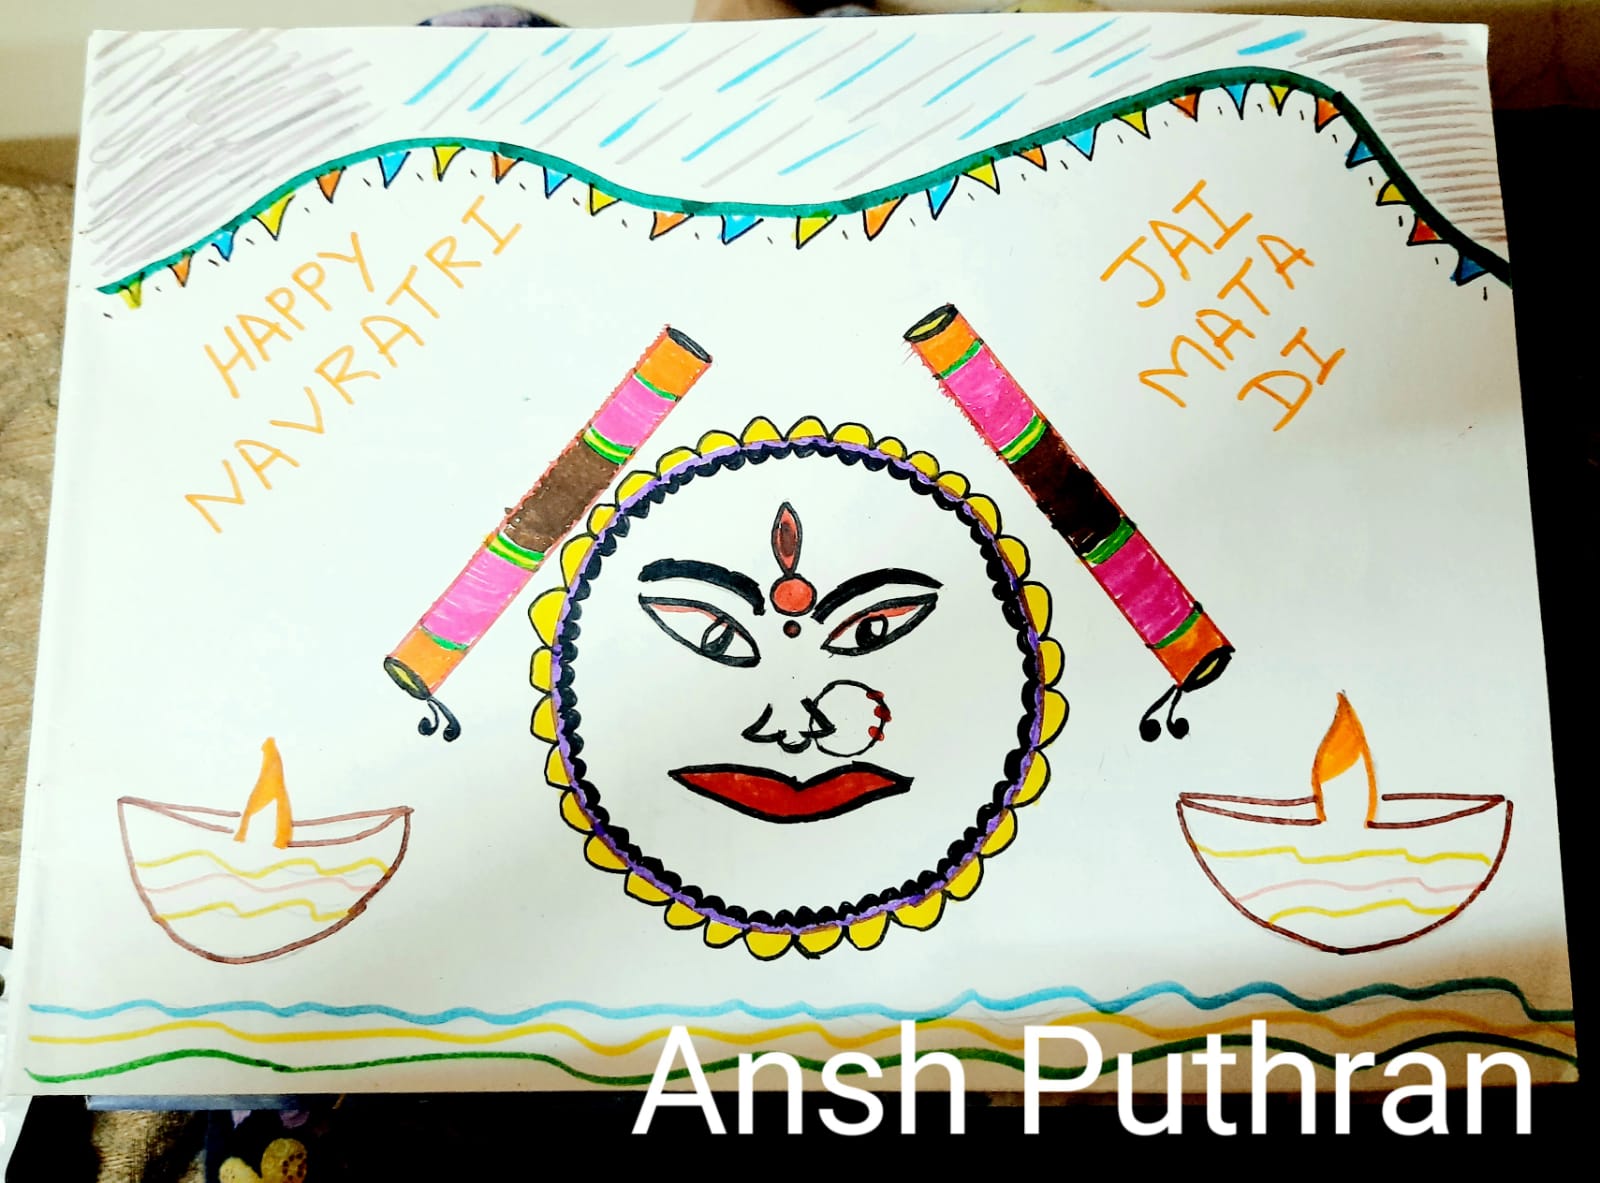 HAPPY
NAVRATRI
JAI
MATA
DI
Ansh Puthran